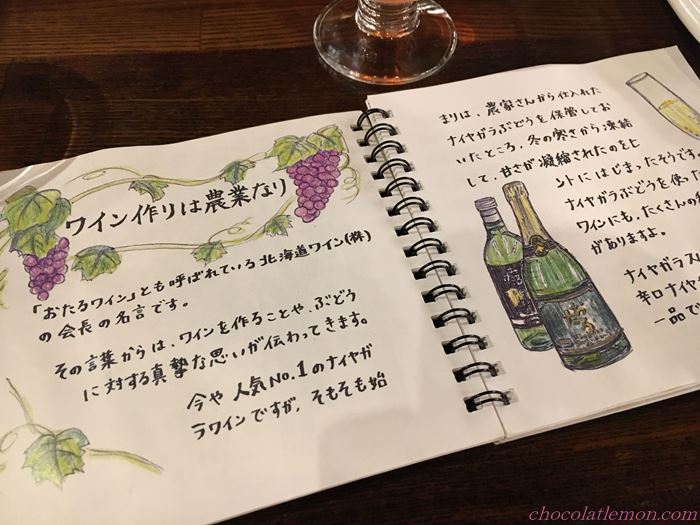 ワイン作りは農業なり
「おたるワイン」とも呼ばれている北海道ワイン(株)
の会長の名言です。
その言葉からは、ワインを作ることや、ぶどう
に対する真摯な思いが伝わってきます。
今や人気No.1のナイヤガ
ラワインですが、そもそも始
まりは、農家さんから仕入れた
ナイヤガラぶどうを保管してお
いたところ、冬の寒さから凍結
して、甘さが凝縮されたのをヒ
ントにはじまったそうです。
ナイヤガラぶどうを使った
ワインにも、たくさんの
がありますよ。
ナイヤガラス
辛口ナイヤ
一品で
chocolatlemon.com